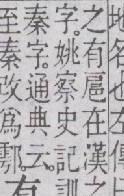 地名也左傳
之有扈在漢
字。姚察史記訓
秦字。通典云。有
至秦改爲鄠